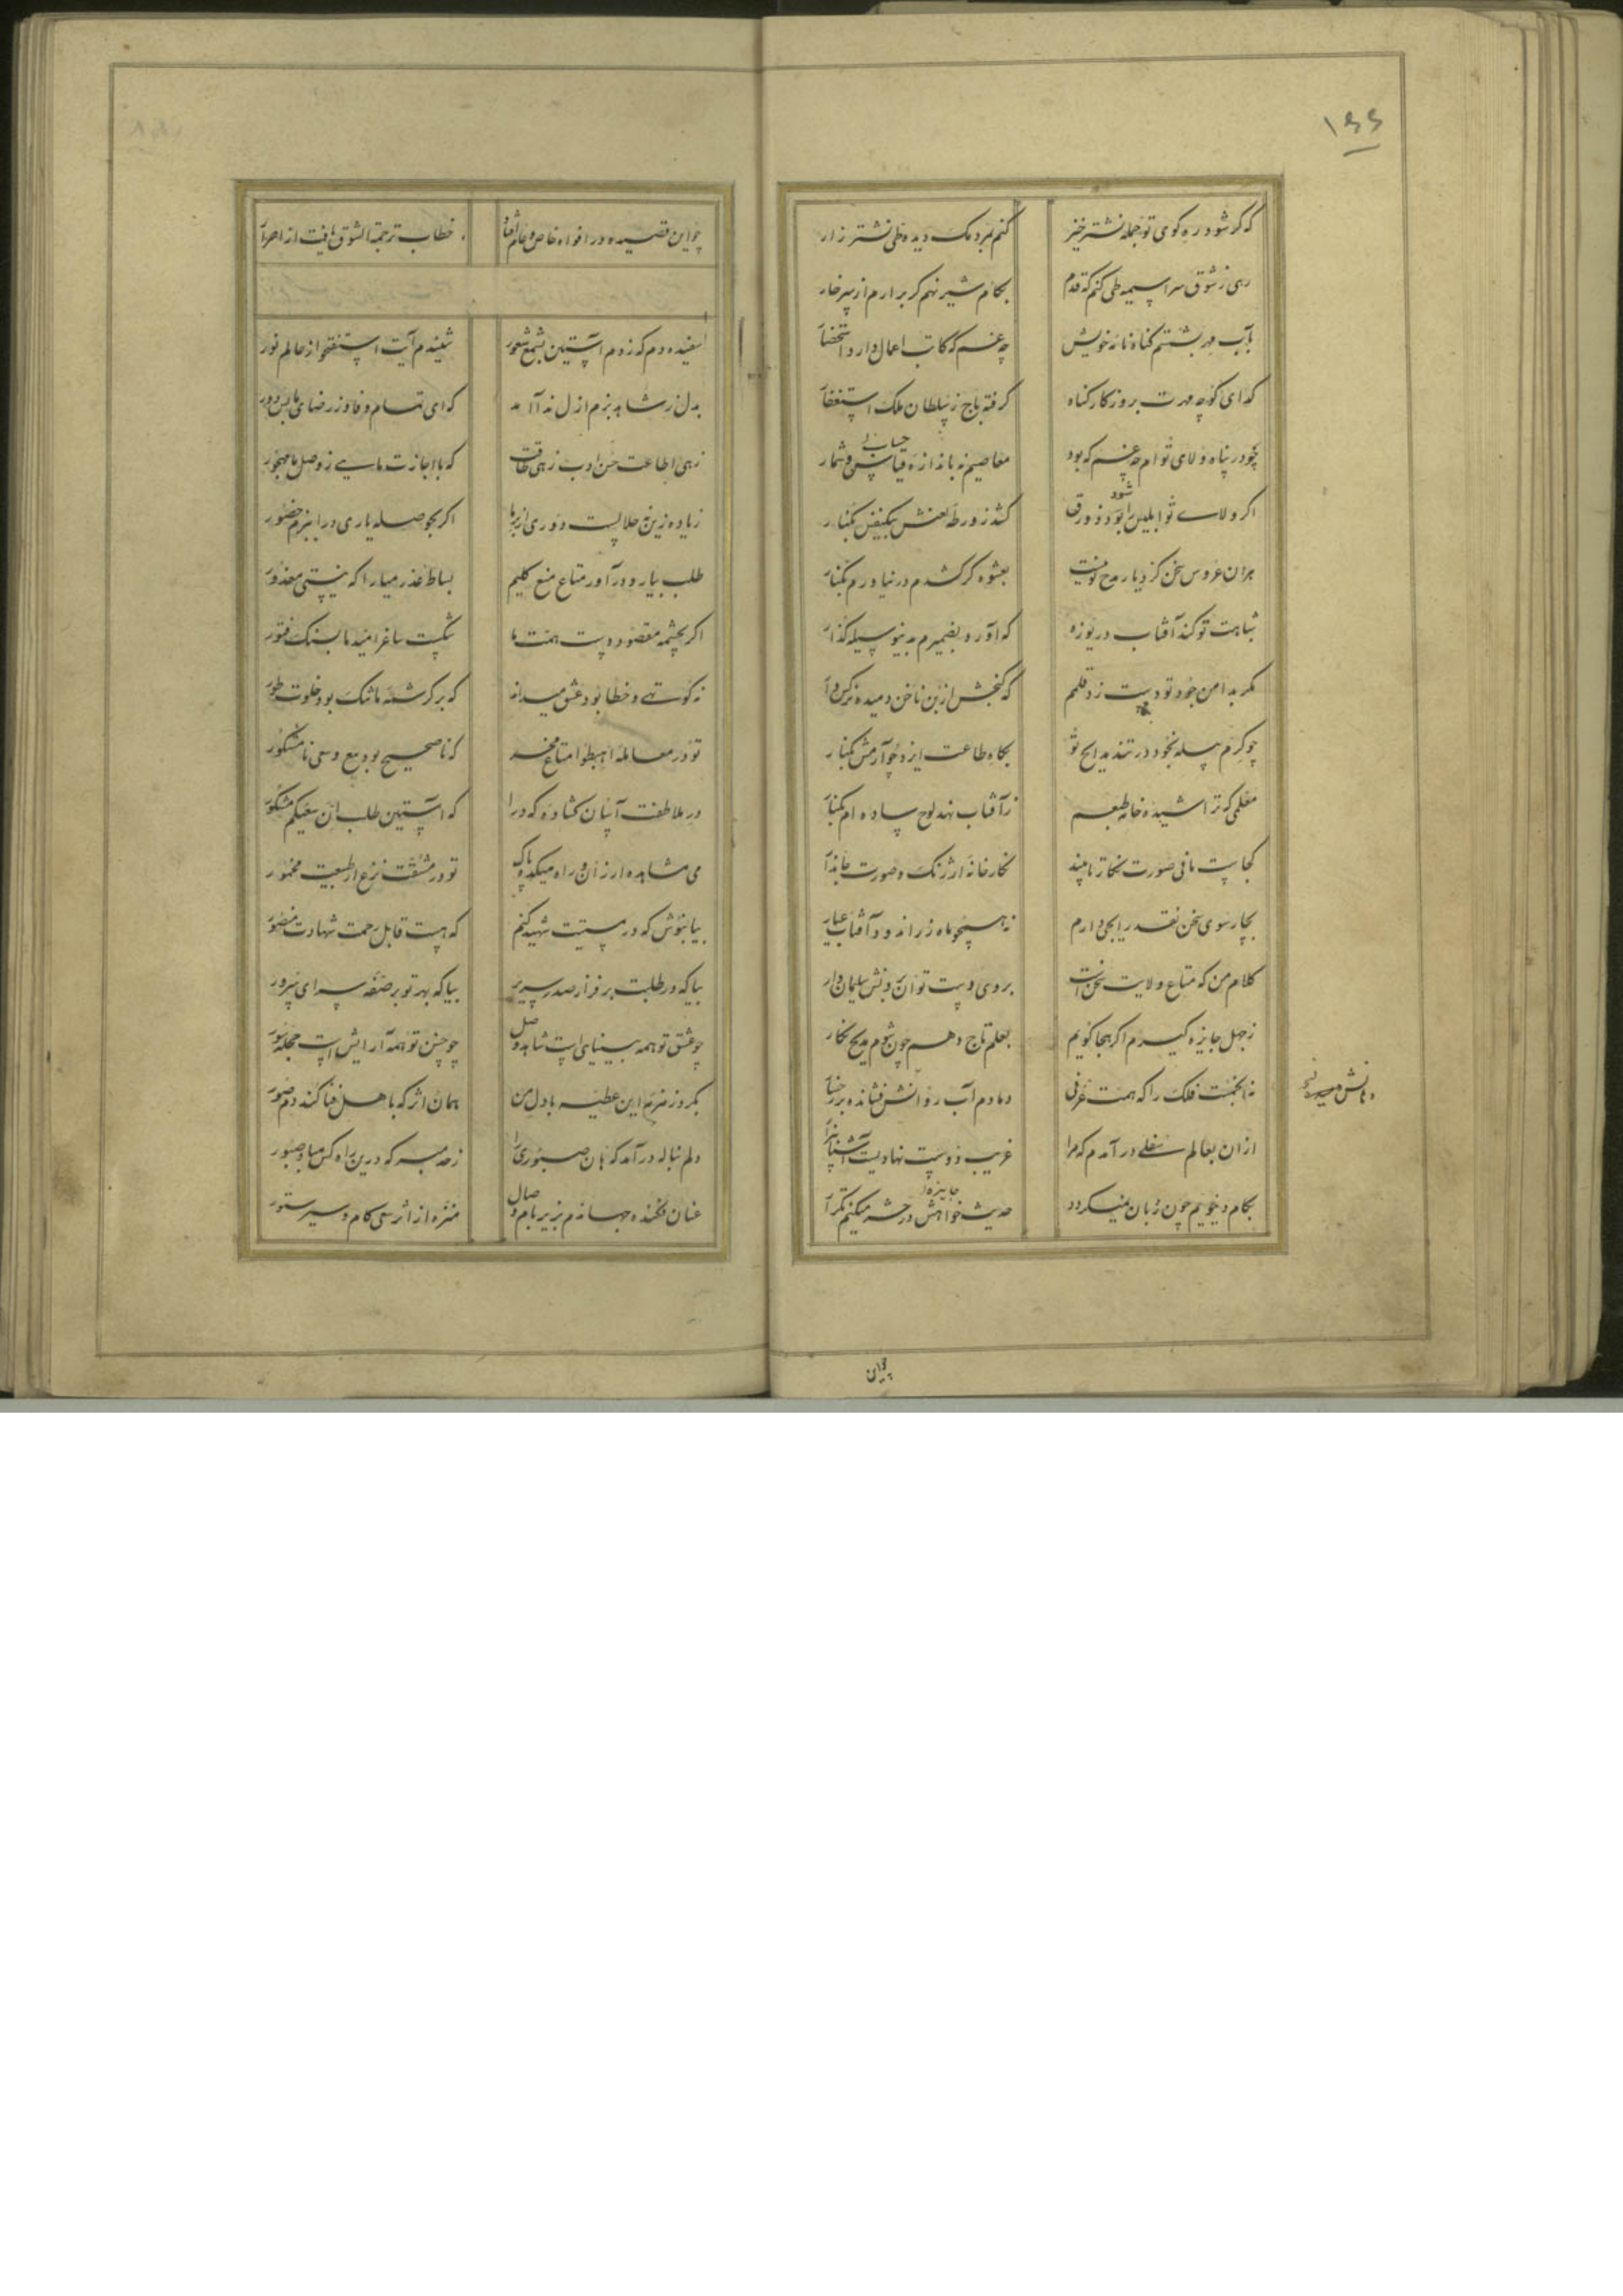 ۱۶۶
که کر شود ره کوی تو جمله نشتر خیز کنم بمردمک دیده طی نشتر زار
رهی ز شوق سراسیمه طی کنم که قدم بکام شیر نهم کر برارم از سر خار
بآب مهر بشستم کناه نامه خویش چه غم که کاتب اعمال دارد استحضار
کدای کوچه مهرت بروزکار کناه کرفته باج ز سلطان ملک استغفار
چو در پناه ولای توام چه غم که بود معاصیم نه باندازه قیاس و شمار
حساب
اکر ولای تو ابلیس را بود زورق کشد ز ورطه لعنش بیکنفس بکنار
شود
هران عروس سخن کز دیار مدح تو نیست بعشوه کر کشدم در نیاورم بکنار
شباهت تو کند آفتاب دریوزه که آورد بضمیرم بدین وسیله کذار
مکر بدامن جود تو دست زد قلمم که کنجش از بن ناخن دمیده
چو کرم سیله بخود در تند مدایح تو بکاه طاعت ایزد چو آرمش بکنار
مقلمی که تراشیده خامه طبعم ز آفتاب نهد لوح ساده ام بکنار
کجاست مانی صورت نکار تا بیند نکارخانه ارژنک و صورت جاندار
بچارسوی سخن نقد رایجی دارم نه همچو ماه زر اندود آفتاب عیار
کلام من که متاع ولایت سخن است بروی دست توانروبنش سلیمان وار
ز جهل جایزه کیرم اکر هجا کویم بعلم تاج دهم چون شوم مدیح نکار
نه انجمست فلک را که همت عرفی دمادم آب رو انش فشانده بر رخسار
دهانش
ازان بعالم سفلی در آمدم که مرا غریب دوست نهادیست آشنا بیزار
بکام و بیخویم چون زبان نمیکردد حدیث خواهش در حشر میکنم تکرار
جایزه
چو این
چو این قصیده در افواه خاص و عام افتاد خطاب ترجمة الشوق یافت از احرار
سفیده دم که زدم آستین بشمع شعور شنیدم آیت استفتحوا از عالم نور
بدل ز شاهد بزم ازل ندا آمد که ای تمام وفا وز رضای ما بس دور
زهی اطاعت حسن ادب زهی طاقت که با اجازت مایی ز وصل ما مهجور
زیاده زین نه حلالست دوری از بر ما اکر بحوصله یاری درا ببزم حضور
طلب بیار و در آور متاع منع کلیم بساط عذر میارا که نیستی معذور
اکر بچشمه مقصود دست همت ما شکست ساغر امید ما بسنک فتور
نه کوتهی و خطا بود عشق میداند که بر کرشمه ما تنک بود خلوت طور
تو در معامله اهبطوا متاع مخر که ناصحیح بود بیع و سعی نامشکور
در ملاطفت آنسان کشاده که درا که آستین طلب ان سعیکم مشکور
می مشاهده ارزان و راه میکده پاک تو در مشقت نزع از طبیعت مخمور
بیا بنوش که در مستیت شهید کنم که هست قابل رحمت شهادت منصور
بیا که در طلبت بر فراز صدر سریر بیا که بهر تو بر صفه سرای سرور
چو عشق تو همه بینایی است شاهد وصل چو حسن تو همه آرایش است حجله سور
بکرد زمزمه این عطیه با دل من همان اثر که باهل فنا کند دم صور
دلم بناله در آمد که هان صبوری را ز حد مبر که درین راه کس مباد صبور
عنان فکنده جهاندم بزیر بام وصال منزه از اثر سعی کام و سیر ستور